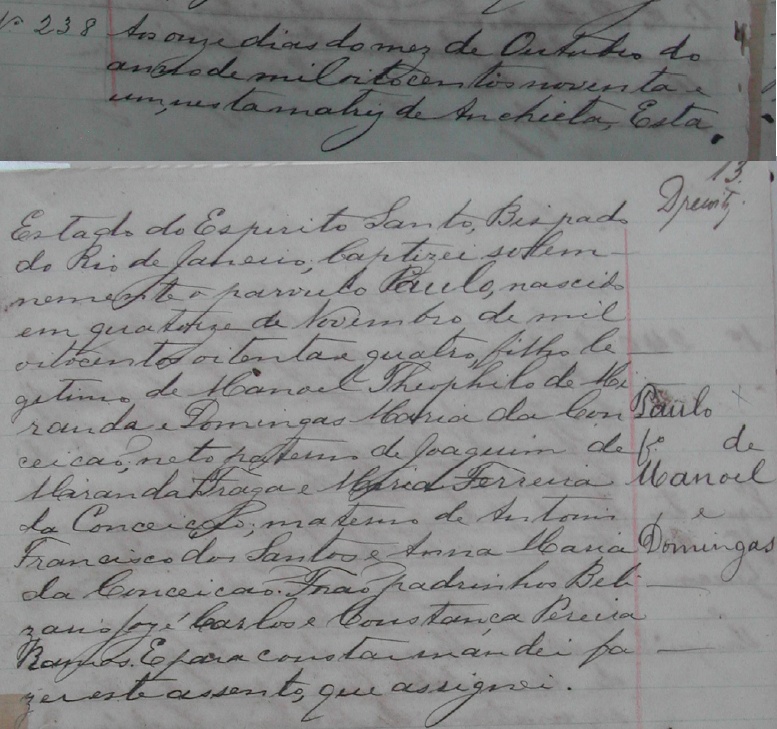 Nº 238 Aos onze dias do mez de Outubro do
anno de mil oitocentos noventa e
um, nesta matriz de Anchieta, Esta
13
Estado do Espirito Santo, Bispado
do Rio de Janeiro, baptizei solem-
nemente o parvulo Paulo, nascido
em quatorze de Novembro de mil
oitocentos oitenta e quatro, filho le-
gitimo de Manoel Theophilo de Mi
randa e Domingas Maria da Con
ceicao, neto paterno de Joaquim de
Miranda Fraga e Maria Ferreira
da Conceição; materno de Antonio
Francisco dos Santos e Anna Maria
da Conceicao. Forão padrinhos Beli-
zario José Carlos e Constança Pereira
Ramos. E para constar mandei fa
zer este assento, que assignei.
Paulo
fº de
Manoel
e
Domingas